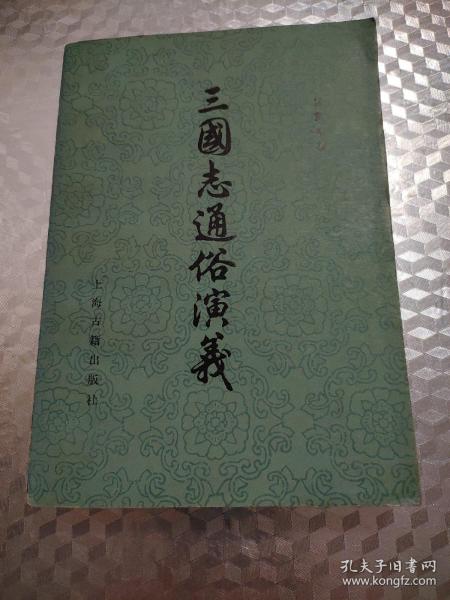 三國志通俗演義
上海古籍出版社
孔夫子旧书网
www.kongfz.com